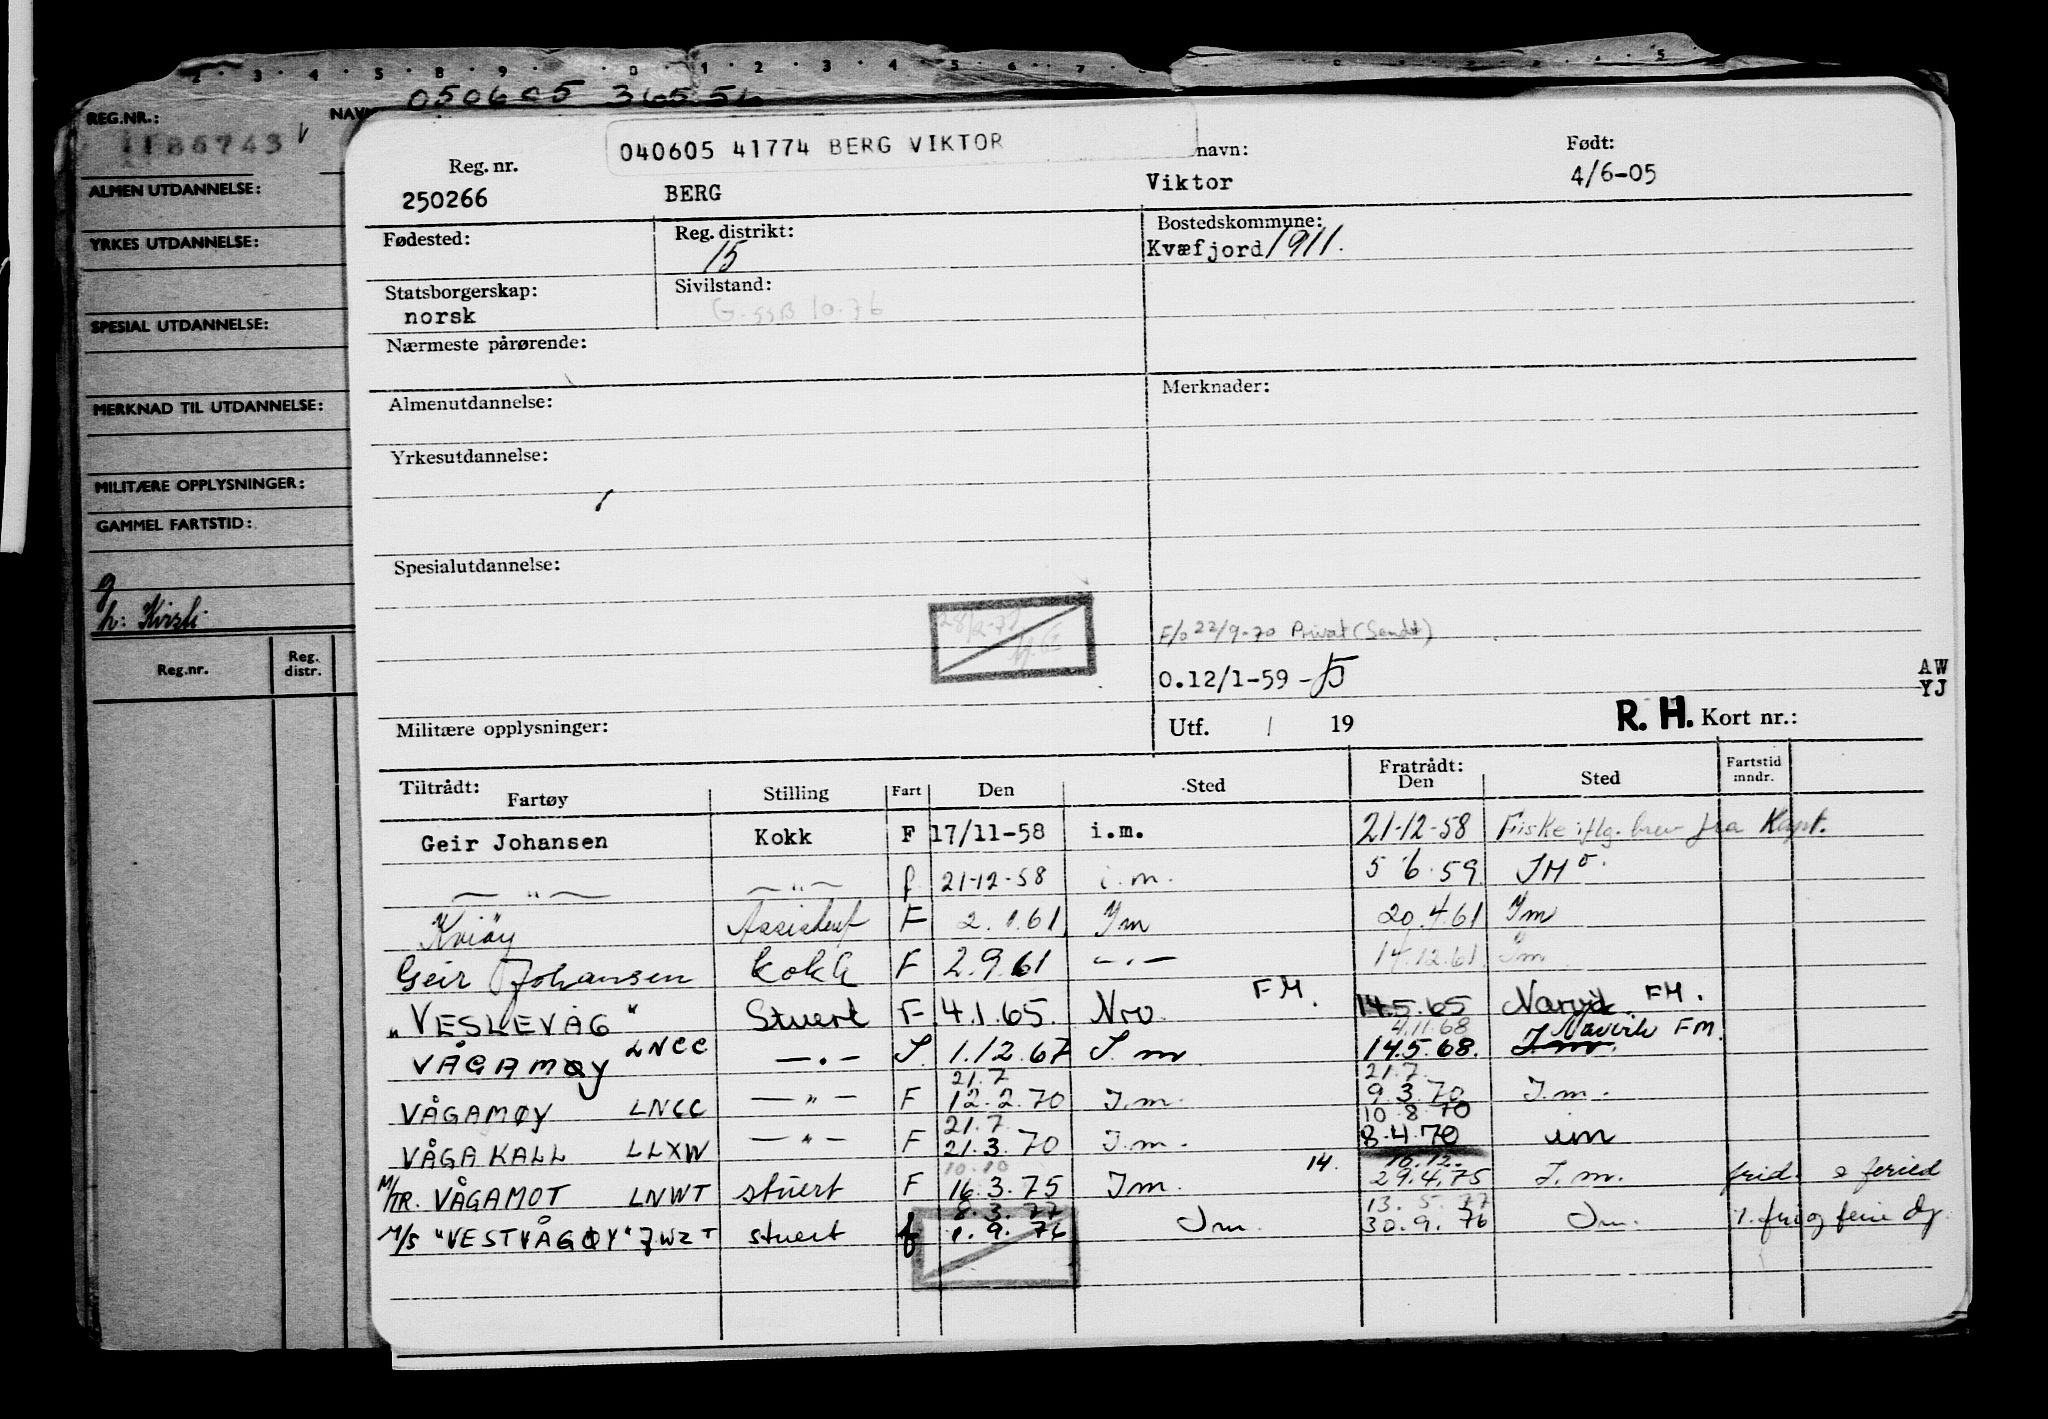 050605 365
REG.NR.:
NAVN
1186743
ALMEN UTDANNELSE:
YRKES UTDANNELSE:
SPESIAL UTDANNELSE:
MERKNAD TIL UTDANNELSE:
MILITÆRE OPPLYSNINGER:
GAMMEL FARTSTID:
g
h: Kirsti
Reg.nr. Reg. distr.
040605 41774 BERG VIKTOR
Reg. nr. navn: Født:
250266 BERG Viktor 4/6-05
Fødested: Reg. distrikt: Bostedskommune:
15 Kvæfjord 1911.
Statsborgerskap: Sivilstand:
norsk G. SSB 10.76
Nærmeste pårørende:
Almenutdannelse: Merknader:
Yrkesutdannelse:
Spesialutdannelse:
F/o 22/9-70 Privat (Sendt)
O.12/1-59 - AW
YJ
Militære opplysninger: Utf. / 19 R. H. Kort nr.:
Tiltrådt: Fratrådt: Fartstid mndr.
Fartøy Stilling Fart Den Sted Den Sted
Geir Johansen Kokk F 17/11-58 i.m. 21-12-58 Fiske iflg. brev fra Kapt.
— " — — " — f 21-12-58 i.m. 5 6.59 IM
Kviøy Assistent F 2.1.61 Im 20.4.61 Im
Geir Johansen kokk F 2.9.61 — . — 14.12.61 Im
"VESLEVÅG" Stuert F 4.1.65. Nro. FM. 14.5.65 Narvik FM.
4.11.68 Narvik FM.
VÅGAMØY LNCC — . — I. 1.12.67 I. m 14.5.68. I.m.
21.7 21.7.
VÅGAMØY LNCC — " — F 12.2.70 I.m. 9.3.70 I.m.
21.7. 10.8.70
VÅGAKALL LLXW — " — F 21.3.70 I.m. 8.4.70 im
10.10 14. 16.12.
M/TR. VÅGAMOT LNWT stuert F 16.3.75 Im. 29.4.75 I.m. frid. e feried
8.3.77 13.5.77
M/S "VESTVÅGØY" JWZT stuert f 1.9.76 Im. 30.9.76 Im. 1. fri og ferie dg.